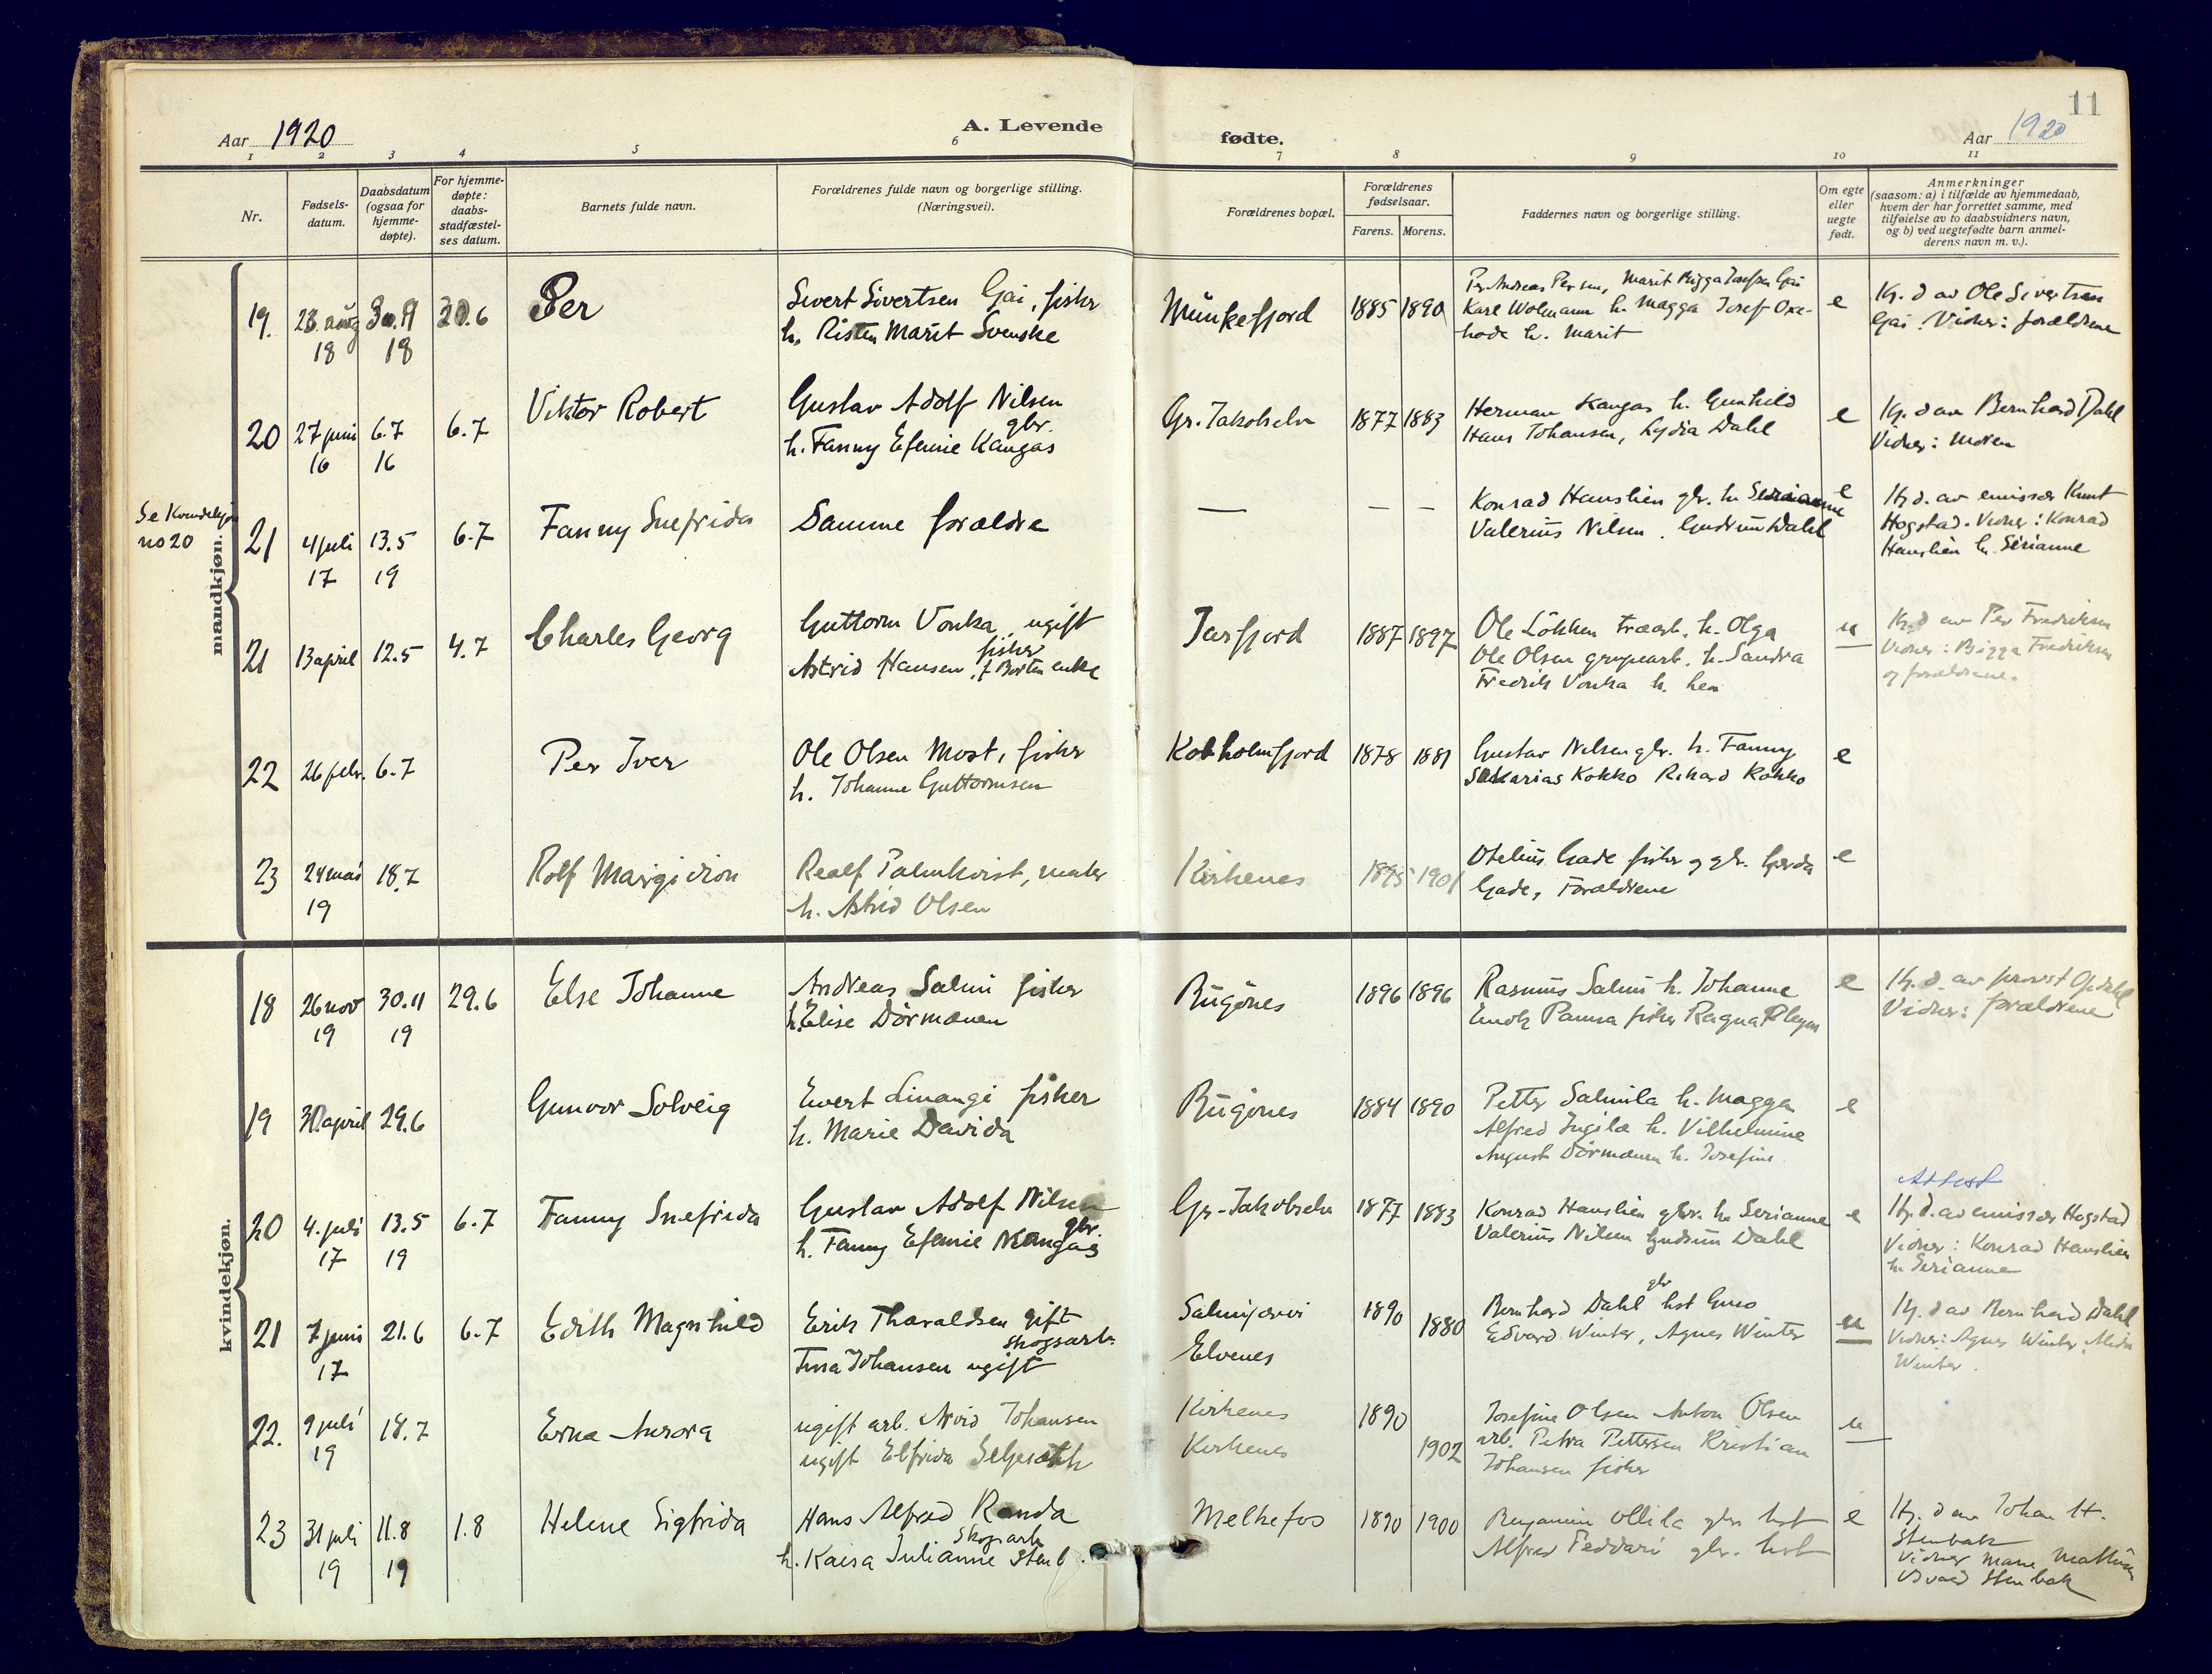 11
Aar 1920
A. Levende fødte.
Aar 1920
1 2 3 4 5 6 7 8 9 10 11
Nr.
Fødsels-
datum.
Daabsdatum
(ogsaa for
hjemme-
døpte).
For hjemme-
døpte:
daabs-
stadfæstel-
ses datum.
Barnets fulde navn.
Forældrenes fulde navn og borgerlige stilling.
(Næringsvei).
Forældrenes bopæl.
Forældrenes
fødselsaar.
Farens. Morens.
Faddernes navn og borgerlige stilling.
Om egte
eller
uegte
født.
Anmerkninger
(saasom: a) i tilfælde av hjemmedaab,
hvem der har forrettet samme, med
tilføielse av to daabsvidners navn,
og b) ved uegtefødte barn anmel-
derens navn m. v.).
mandkjøn.
19.
23. aug
18
18
Per
Sivert Sivertsen Gai, fisker
h. Risten Marit Svenske
Munkefjord
1885 1890
Karl Wolmann h. Magga Josef Oxe-
hode h. Marit
e
Hj. d av Ole Sivertsen
Gai. Vidner: forældrene
20
27 juni
16
6.7
16
6.7
Viktor Robert
Gustav Adolf Nilsen
gbr.
h. Fanny Efenie Kangas
Gr. Jakobselv
1877 1883
Herman Kangas h. Gunhild
Hans Johansen, Lydia Dahl
e
Hj. d av Bernhard Dahl
Vidner: Moren
Se Kvindekjøn
no 20
21
4 juli
17
13.5
19
6.7
Fanny Snefrida
Samme forældre
—
— —
Konrad Hanslien gbr. h. Serianne
Valerius Nilsen. Gudrun Dahl
e
Hj d. av emissær Knut
Hogstad. Vidner: Konrad
Hanslien h. Serianne
21
13 april
12.5
4.7
Charles Georg
Guttorm Vonka, ugift
fisker
Astrid Hansen, f. Borten enke
Jarfjord
1887 1897
Ole Løkken træarb. h. Olga
Ole Olsen grupearb. h. Sandra
Fredrik Vonka h.
u
Hj. d av Per Fredriksen
Vidner: Bigga Fredriksen
og forældrene.
22
26 febr.
6.7
Per Iver
Ole Olsen Most, fisker
h. Johanne Guttormsen
Kobholmfjord
1878 1881
Gustav Nilsen gbr. h. Fanny
Sakarias Kokko Rikard Kokko
e
23
24 mai
19
18.7
Rolf
Realf Palmkvist, maler
h. Astrid Olsen
Kirkenes
1895 1901
Otelius Gade fisker og gbr. Gerda
Gade, Forældrene
e
kvindekjøn.
18
26 nov
19
30.11
19
29.6
Else Johanne
Andreas Salmi fisker
h. Elise Dørmænen
Bugønes
1896 1896
Rasmus Salmi h. Johanne
Enok Pamsa fisker Ragna
e
Hj. d. av provst Opdahl
Vidner: forældrene
19
april
29.6
Gunvor Solveig
Evert Linangi fisker
h. Marie Davida
Bugønes
1884 1890
Petter Salmila h. Magga
Alfred Ingilæ h. Vilhelmine
August Dørmænen h. Josefine
e
20
4. juli
17
13.5
19
6.7
Fanny Snefrida
Gustav Adolf Nilsen
gbr.
h. Fanny Efenie Kangas
Gr. Jakobselv
1877 1883
Konrad Hanslien gbr. h. Serianne
Valerius Nilsen Gudrun Dahl
e
Attest
Hj. d. av emissær Hogstad
Vidner: Konrad Hanslien
h. Serianne
21
7 juni
17
21.6
6.7
Edith Magnhild
Erik Tharaldsen gift
skogsarb.
Johansen ugift
Salmijærvi
Elvenes
1890
1880
gbr
Bernhard Dahl hst
Edvard Winter, Agnes Winter
u
Hj. d av Bernhard Dahl
Vidner: Agnes Winter,
Winter.
22.
9 juli
19
18.7
Erna Aurora
ugift arb. Arvid Johansen
ugift Elfrida
Kirkenes
Kirkenes
1890
1902
Josefine Olsen Anton Olsen
arb. Petra Pettersen Kristian
Johansen fisker
u
23
31 juli
19
11.8
19
1.8
Helene Sigfrida
Hans Alfred Randa
Skogsarb
h. Kaisa Julianne Stenb.
Melkefos
1890 1900
Benjamin Ollila gbr. hst
Alfred Peddari gbr. hst
e
Hj. d av Johan H.
Stenbak
Vidner Marie
Stenbak